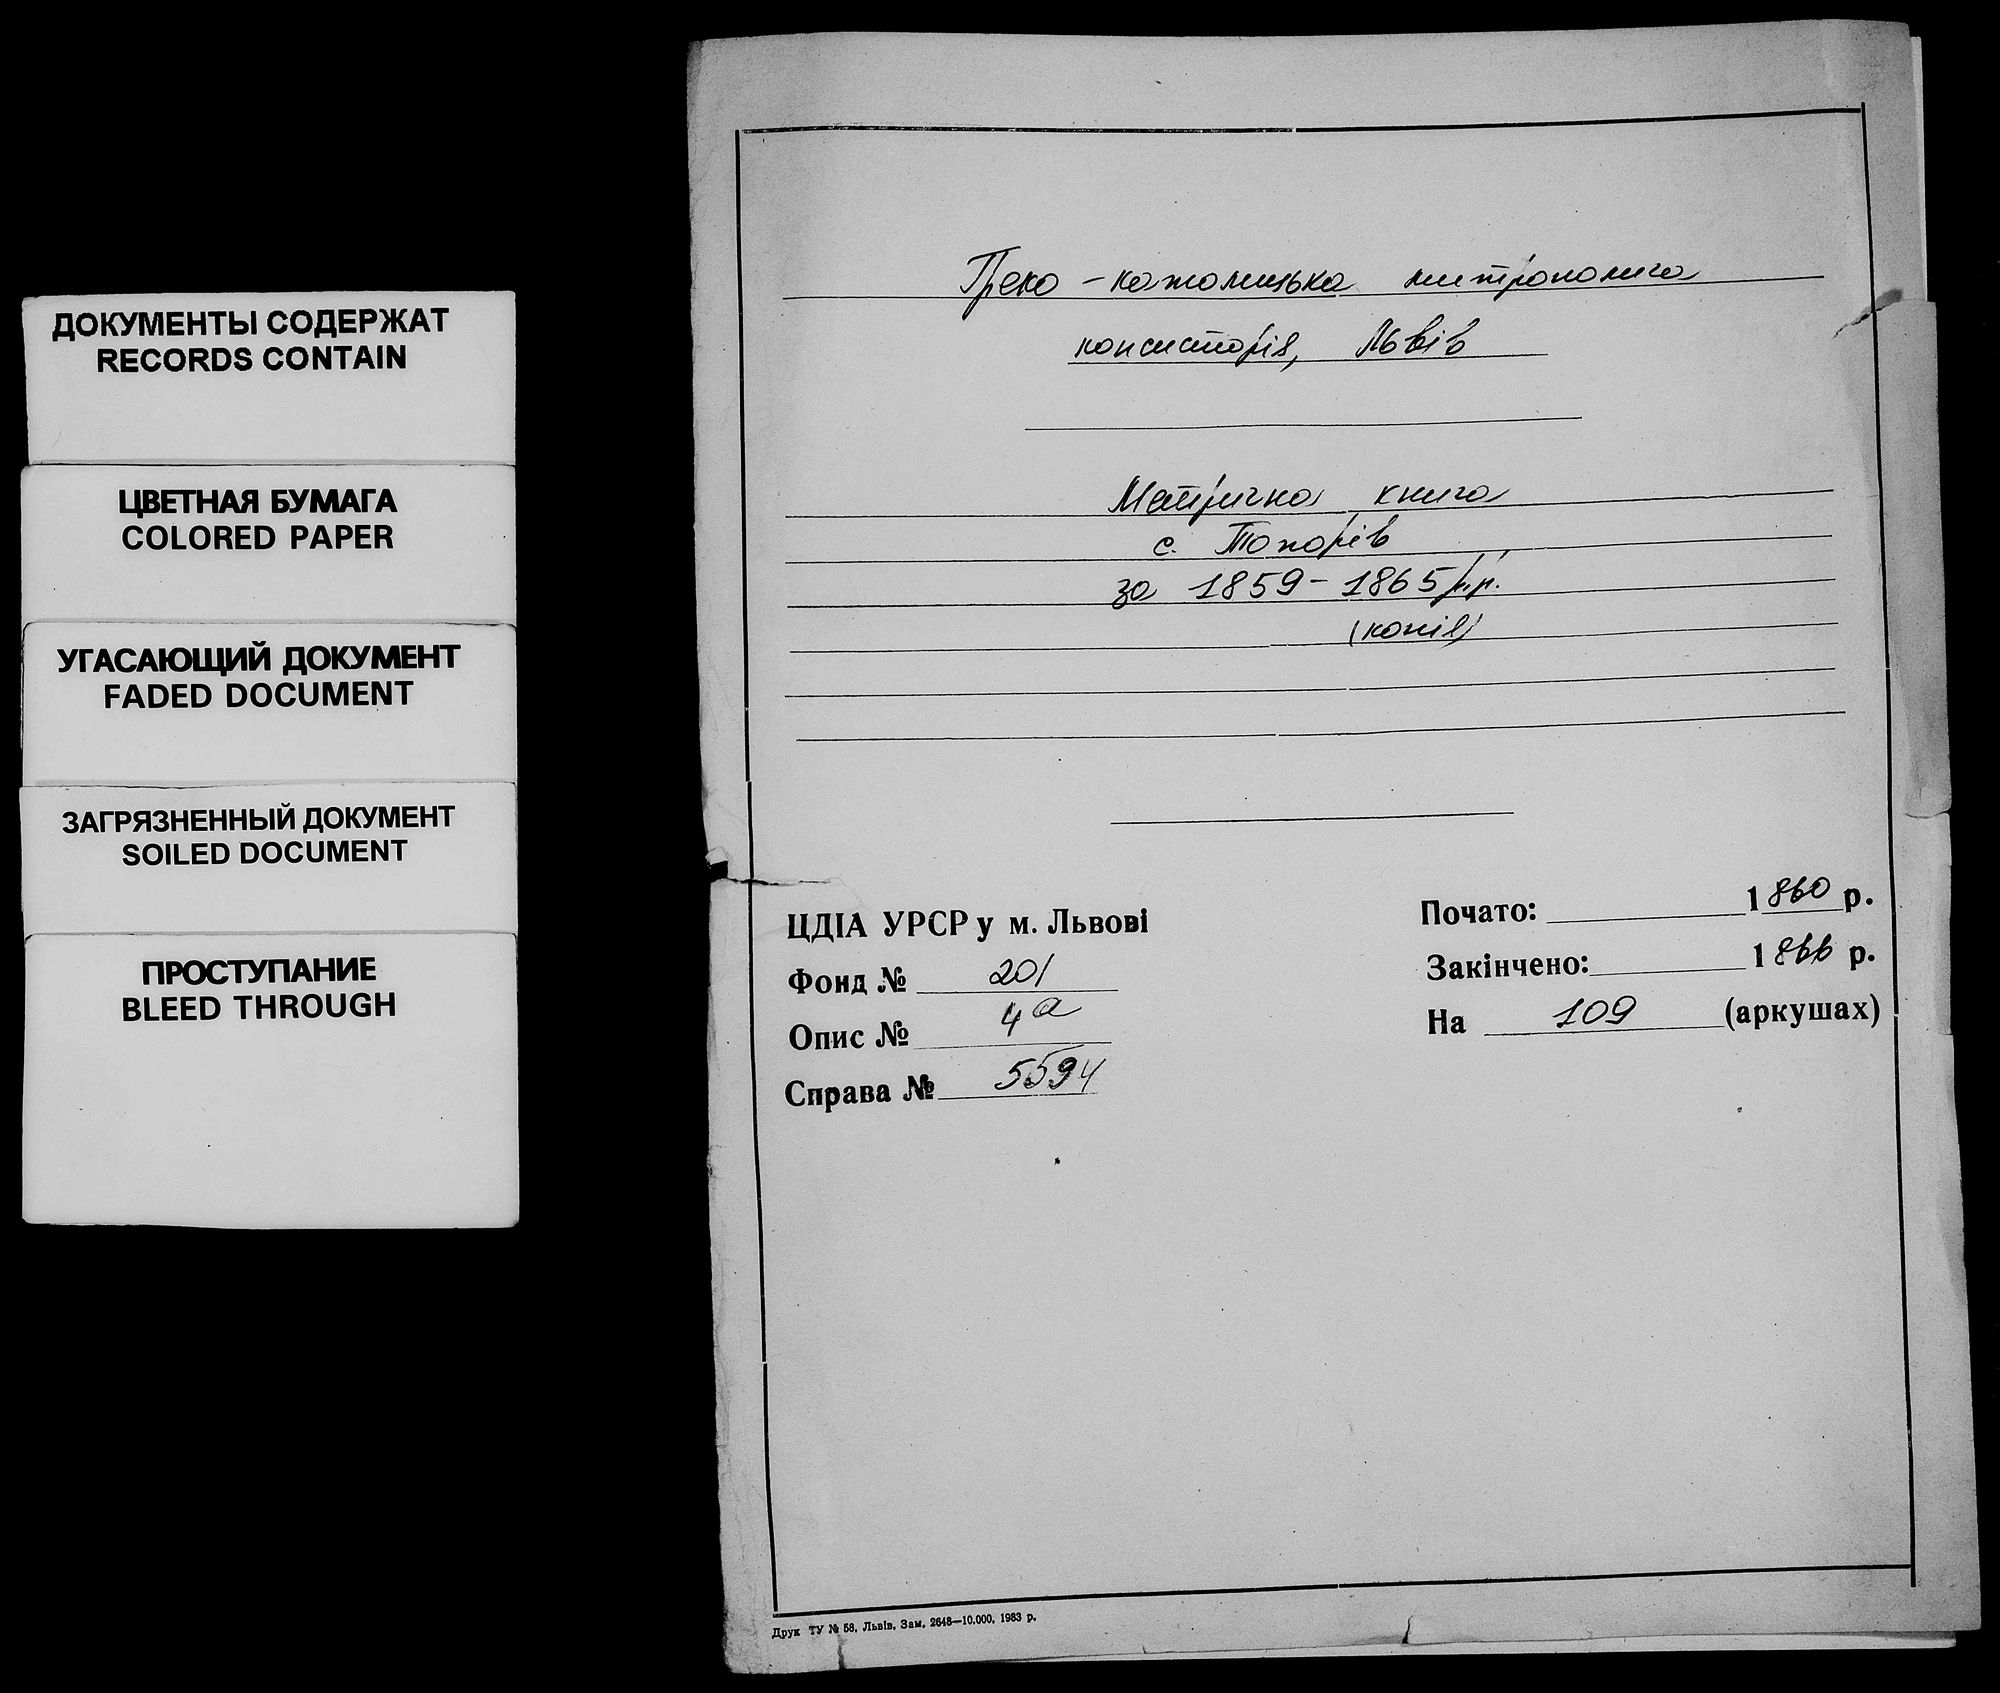 ДОКУМЕНТЫ СОДЕРЖАТ
RECORDS CONTAIN
ЦВЕТНАЯ БУМАГА
COLORED PAPER
УГАСАЮЩИЙ ДОКУМЕНТ
FADED DOCUMENT
ЗАГРЯЗНЕННЫЙ ДОКУМЕНТ
SOILED DOCUMENT
ПРОСТУПАНИЕ
BLEED THROUGH
Греко-католицька митрополича
консисторія, Львів
Матрична книга
с. Топорів
за 1859-1865 р.р.
(копія)
ЦДІА УРСР у м. Львові
Фонд № 201
Опис № 4а
Справа № 5594
Почато: 1860 р.
Закінчено: 1866 р.
На 109 (аркушах)
Друк ТУ № 58, Львів, Зам. 2648—10.000. 1983 р.